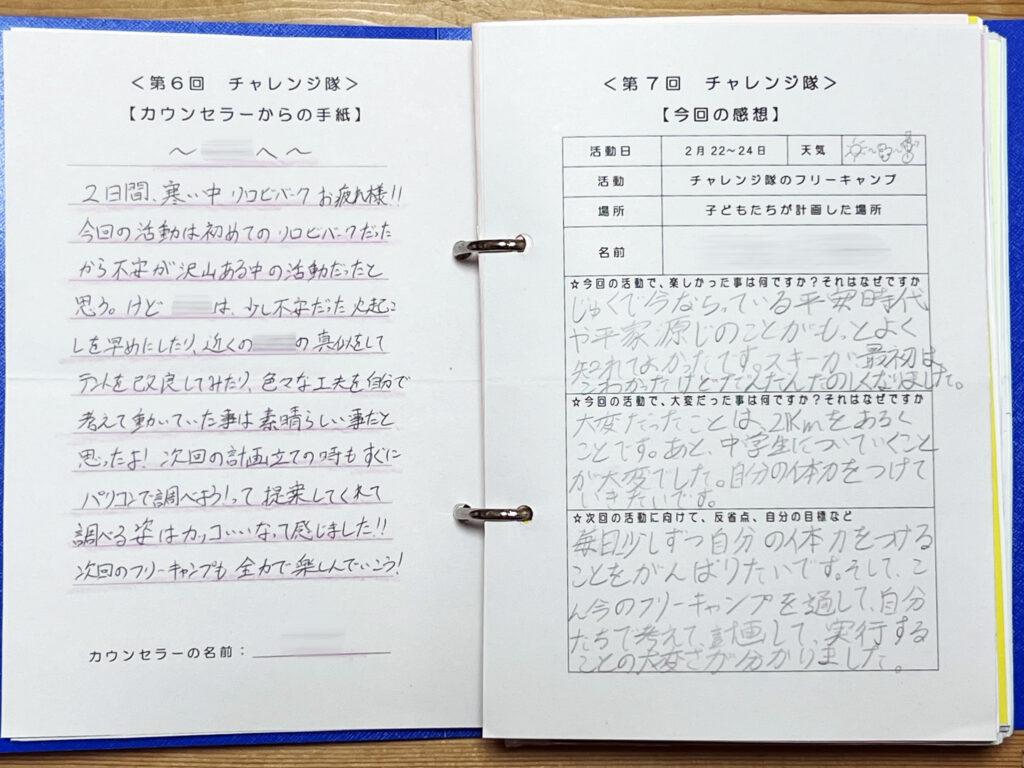 ＜第６回　チャレンジ隊＞
【カウンセラーからの手紙】
～　　　へ～
２日間、寒い中 ソロビバーク お疲れ様!!
今回の活動は初めての ソロビバークだった
から不安が沢山ある中の活動だったと
思う。けど　　　は、少し不安だった 火起こ
しを早めにしたり、近くの　　　の真似をして
テントを改良してみたり、色々な工夫を自分で
考えて動いていた事は素晴らしい事だと
思ったよ! 次回の計画立ての時もすぐに
パソコンで調べよう!って提案してくれて
調べる姿はカッコいいなって感じました!!
次回のフリーキャンプも 全力で楽しんでいこう!
カウンセラーの名前：
＜第７回　チャレンジ隊＞
【今回の感想】
活動日　２月２２～２４日　天気
活動　チャレンジ隊のフリーキャンプ
場所　子どもたちが計画した場所
名前
☆今回の活動で、楽しかった事は何ですか？それはなぜですか
じゅくで今ならっている平安時代
や平家、源じのことがもっとよく
知れてよかったてす。スキーが最初は
こわかったけどだんだんたのしくなりました。
☆今回の活動で、大変だった事は何ですか？それはなぜですか
大変だったことは、21Kmをあるく
ことです。あと、中学生についていくこと
が大変でした。自分の体力をつけて
いきたいです。
☆次回の活動に向けて、反省点、自分の目標など
毎日少しずつ自分の体力をつける
ことをがんばりたいです。そして、こ
ん今のフリーキャンプを通して、自分
たちで考えて、計画して、実行する
ことの大変さが分かりました。